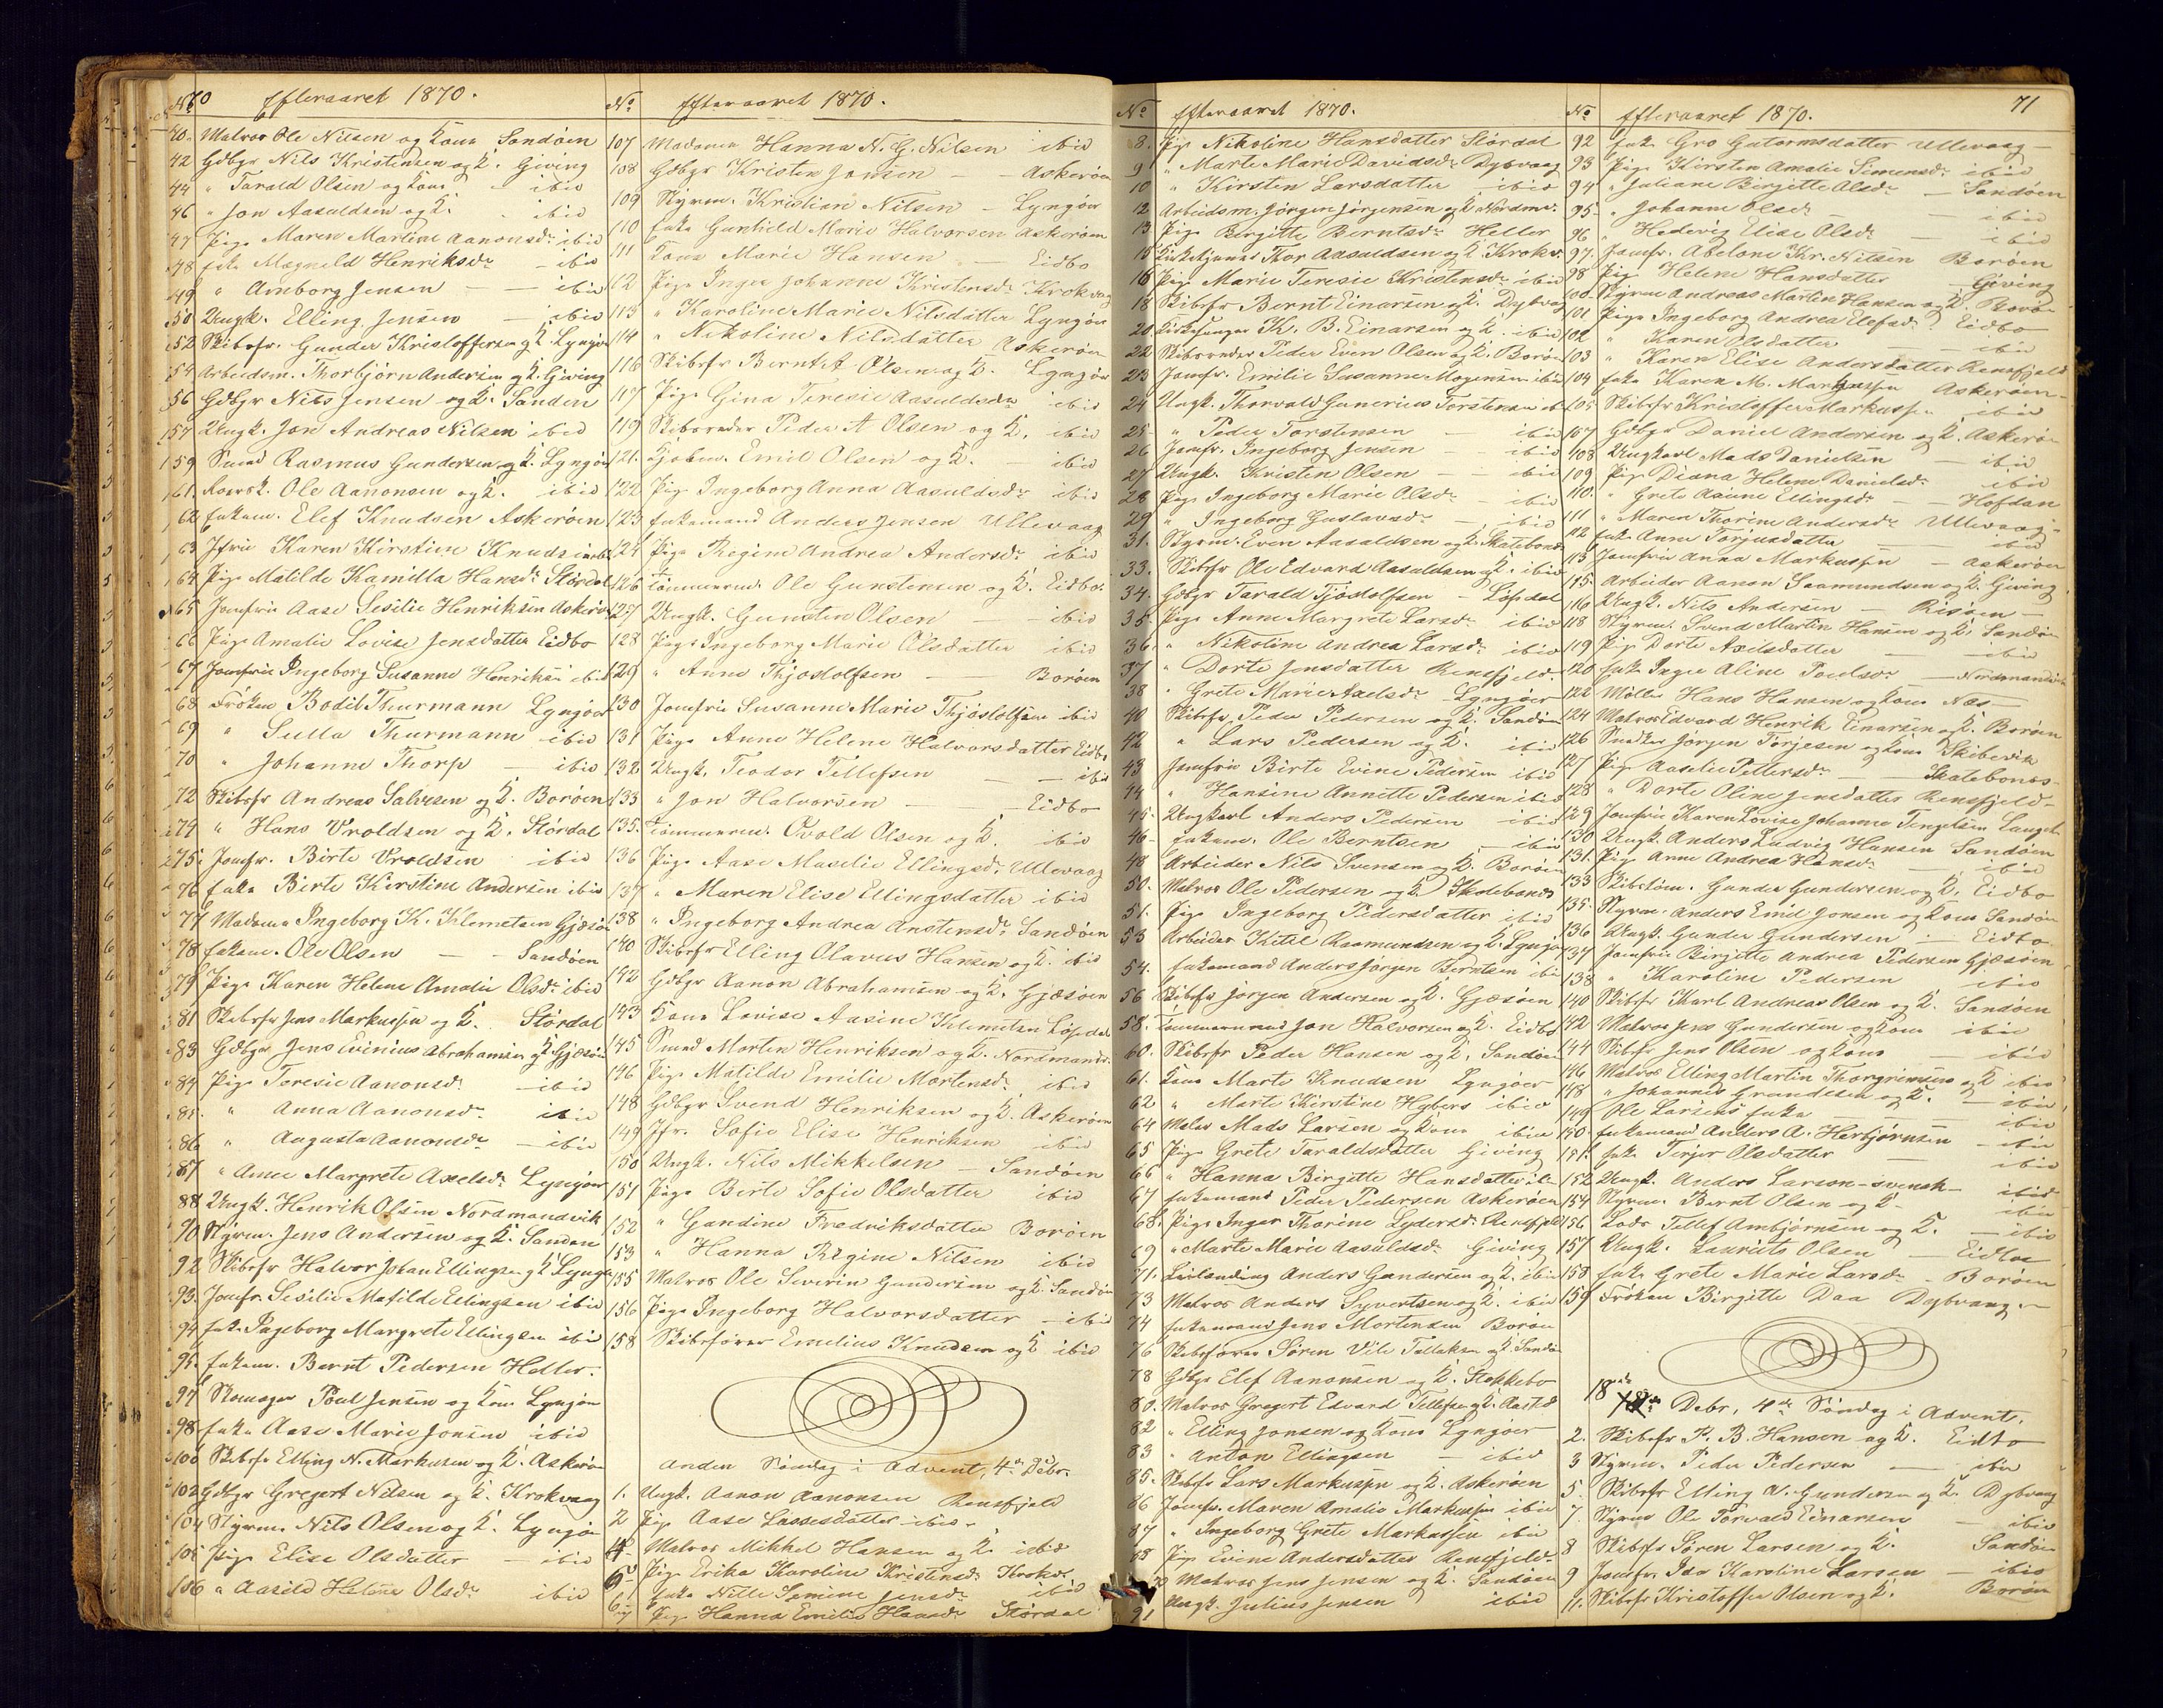 70
No Efteraaret 1870.
40. Matros Ole Nilsen og Kone Sandøen
42 Gdbgr Nils Kristensen og K. Giving
44 " Tarald Olsen og Kone - ibid
46 " Jon Aasuldsen og K. - ibid
47 Pige Maren Martine Aanonsdr ibid
48 Enke Magnild Henriksdr - ibid
49 " Amborg Jensen - ibid
50 Ungk. Elling Jensen - ibid
52 Skibsfr. Gunder Kristoffersen og K. Lyngør
54 Arbeidsm. Thorbjørn Andersen og K. Giving
56 Gdbgr Nils Jensen og K. Sanden
57 Ungk. Jon Andreas Nilsen ibid
59 Smed Rasmus Gundersen og K. Lyngør
61. Ole Aanonsen og K. ibid
62 Enkem. Elef Knudsen Askerøen
63 Jfru Karen Kirstine Knudsen ibid
64 Pige Matilde Kamilla Hansdr Stórdal
65 Jomfru Aase Sesilie Henriksen Askerø
66 Pige Amalie Lovise Jensdatter Eidbo
67 Jomfru Ingeborg Susanne Henriksen ibid
68 Frøken Bodil Thurmann Lyngøer
69 " Sulla Thurmann ibid
70 " Johanne Thorp - ibid
72 Skibsfr Andreas Salvesen og K. Borøen
74 " Hans Vroldsen og K. Stórdal
75. Jomfr. Birte Vroldsen ibid
76 Enke Birte Kirstine Andersen ibid
77 Madame Ingeborg K. Klemetsen Gjæsøen
78 Enkem. Ole Olsen - - Sandøen
79 Pige Karen Helene Amalie Olsdr ibid
81 Skibsfr Jens Markussen og K. Stórdal
83 Gdbgr Jens Evinius Abrahamsen og K. Gjæsøen
84 Pige Teresie Aanonsdr - ibid
85. " Anna Aanonsdr - ibid
86 " Augusta Aanonsdr - ibid
87 " Anne Margrete Axelsdr Lyngøer
88 Ungk. Henrik Olsen Nordmandvik
90 Styrm. Jens Andersen og K. Sanden
92 Skibsfr Halvor Johan Ellingsen og K. Lyngø
93. Jomfr. Sesilie Matilde Ellingsen ibid
94 Enke Ingeborg Margrete Ellingsen ibid
95. Enkem. Bernt Pedersen Holler.
97 Skomager Poul Jensen og Kone Lyngør
98. Enke Aase Marie Jonsen ibid
100 Skibsfr Elling N. Markusen og K. Askerøen
102 Gdbgr Gregert Nilsen og K. Krokvaag
104 Styrm. Nils Olsen og K. Lyngør
105 Pige Elise Olsdatter - ibid
106 " Aasild Helene Olsdr ibid
No Efteraaret 1870.
107 Madame Hanna N. G. Nilsen ibid
108 Gdbgr Kristen Jonsen - - Askerøen
109 Styrm. Kristian Nilsen - Lyngøer
110 Enke Gunhild Marie Halvorsen Askerøen
111 Kone Marie Hansen - Eidbo
112 Pige Inger Johanne Kristensdr Krokvaag
113 " Karoline Marie Nilsdatter Lyngøer
114 " Nikoline Nilsdatter Askerøen
116 Skibsfr Bernt A Olsen og K. Lyngøer
117 Pige Gina Teresie Aasuldsdr ibid
119 Skibsreder Peder A Olsen og K. ibid
121. Emil Olsen og K. - ibid
122 Pige Ingeborg Anna Aasuldsdr ibid
123 Enkemand Anders Jensen Ullevaag
124 Pige Regine Andrea Andersdr ibid
126 Tømmerm. Ole Gunstensen og K. Eidbo
127 Ungk. Gunsten Olsen - - ibid
128 Pige Ingeborg Marie Olsdatter ibid
129 " Anne Thjostolfsen - Borøen
130 Jomfru Susanne Marie Thjostolfsen ibid
131 Pige Anne Helene Halvorsdatter Eidbo
132 Ungk. Teodor Tellefsen - - ibid
133 " Jon Halvorsen - Eidbo
135. Tømmerm. Ovold Olsen og K. ibid
136 Pige Aase Maselie Ellingsdr Ullevaag
137 " Maren Elise Ellingsdatter ibid
138 " Ingeborg Andrea Anstensdr Sandøen
140 Skibsfr Elling Olavus Hansen og K. ibid
142 Gdbgr Aanon Abrahamsen og K. Gjæsøen
143 Kone Lovise Aasine Klemetsen Løsdal
145 Smed Morten Henriksen og K. Nordmandv.
146 Pige Matilde Emilie Mortensdr ibid
148 Gdbgr Svend Henriksen og K. Askerøen
149 Jfr. Sofie Elise Henriksen ibid
150 Ungk. Nils Mikkelsen - Sandøen
151 Pige Birte Sofie Olsdatter ibid
152 " Gundine Fredriksdatter Borøen
153 " Hanna Regine Nilsen ibid
155 Matros Ole Severin Gundersen og K. Sandøen
156 Pige Ingeborg Halvorsdatter - ibid
158 Skibsfører Emelius Knudsen og K ibid
Anden Søndag i Advent, 4de Debr.
1. Ungk. Aanon Aanonsen Rensfjeld
2 Pige Aase Lassesdatter ibid.
4 Matros Mikkel Hansen og K. ibid
5 Pige Erika Karoline Kristensdr Krokv.
6 Enke Nille Jensdr ibid
7 Pige Hanna Emilie Hansdr Stórdal
No Efteraaret 1870.
8. Pige Nikoline Hansdatter Stórdal
9 " Marte Marie Davidsdr Dybvaag
10 " Kirsten Larsdatter ibid
12 Arbeidsm. Jørgen Jørgensen og K. Nordmv.
13. Pige Birgitte Berntsdr Holler
15 Kirketjener Thor Aasuldsen og K. Krokv.
16 Pige Marie Teresie Kristensdr ibid
18 Skibsfr Bernt Einarsen og K. Dybvaag
20 Kirkesanger K. B. Einarsen og K. ibid
22 Skibsreder Peder Even Olsen og K. Borøen
23 Jomfr. Emilie Susanne Mogensen ibid
24 Ungk. Thorvald Gunerius Torstensen ib
25 " Peder Torstensen - ibid
26 Jomfr. Ingeborg Jensen - ibid
27 Ungk. Kristen Olsen - ibid
28 Pige Ingeborg Marie Olsdr - ibid
29 " Ingeborg Gustavsdr - ibid
31. Styrm. Even Aasuldsen og K. Skatebonæs
33. Skibsfr Ol Edvard Aasuldsen og K. ibid
34. Gdbgr Tarald Tjostolfsen - Løsdal
35. Pige Anne Margrete Larsdr ibid
36. " Nikoline Andrea Larsdr ibid
37 " Dorte Jensdatter Rensfjeld.
38 " Grete Marie Axelsdr Lyngøer
40 Skibsfr. Peder Pedersen og K. Sandøen
42 " Lars Pedersen og K. ibid
43 Jomfru Birte Evine Pedersen ibid
44 " Hansine Annette Pedersen ibid
45. Ungkarl Anders Pedersen ibid
46 Enkem. Ole Berntsen - ibid
48 Arbeider Nils Svensen og K. Borøen
50. Matros Ole Pedersen og K. Skatebonæs
51. Pige Ingeborg Pedersdatter ibid
53 Arbeider Ketil Rasmundsen og K. Lyngør
54. Enkemand Anders Jørgen Berntsen ibid
56 Skibsfr Jørgen Andersen og K. Gjæsøen
58. Tømmermand Jon Halvorsen og K. Eidbo
60. Skibsfr Peder Hansen og K. Sandøen
61. Kone Marte Knudsen Lyngøer
62 " Marte Kirstine Hybers ibid
64 Maler Mads Larsen og Kone ibid
65 Pige Grete Taraldsdatter Giving
66 " Hanna Birgitte Hansdatter ib
67 Enkemand Peder Pedersen Askerøen
68. Pige Inger Thorine Lydersdr Rensfjeld
69 " Marte Marie Aasuldsdr Giving
71. Anders Gundersen og K. ibid
73 Matros Anders Syvertsen og K. ibid
74 Enkemand Jens Mortensen Borøen
76 Skibsfører Søren Vile Tellaksen og K. Sandø
78 Gdbgr Elef Aanonsen og K. Stokkebo
80. Matros Gregert Edvard Tellefsen og K.
82 " Elling Jonsen og Kone Lyngøer
83 " Anton Ellingsen - ibid
85. Skibsfr Lars Markussen og K. Askerøen
86 Jomfr. Maren Amalie Markussen ibid
87 " Ingeborg Grete Markussen ibid
88 Pige Evine Andersdatter Rensfjeld.
90 Matros Jens Jensen og K. Sandøen
91 Ungk. Julius Jensen ibid
71
No Efteraaret 1870.
92 Enke Gro Gutormsdatter Ullevaag -
93 Pige Kirsten Amalie Simensdr ibid
94 " Juliane Birgitte Olsdr - Sandøen
95 " Johanne Olsdr - ibid
96 " Hedevig Elise Olsdr - ibid
97. Jomfr. Abelone Kr. Nilsen Borøen
98 Pige Helene Hansdatter Giving
100 Styrm Andreas Martin Hansen og K. Borø
101 Pige Ingeborg Andrea Elefsdr Eidbo
102 " Karen Olsdatter - ibid
103 " Karen Elise Andersdatter Rensfjeld
104 Enke Karen M. Markussen Askerøen
105 Skibsfr Kristoffer Markussen ibid
107 Gdbgr Daniel Andersen og K. Askerø
108 Ungkarl Mads Danielsen - ibid
109 Pige Diana Helene Danielsdr ibid
110. " Grete Aanne Ellingsdr - Hofdan
111 " Maren Thorine Andersdr Ullevaag
112 Enke Anne Torjusdatter ibid
113 Jomfru Anna Markussen - Askerøen
115. Arbeider Aanon Saamundsen og K. Giving
116 Ungk. Nils Andersen - Risøen -
118 Styrm. Svend Martin Hansen og K. Sandøen
119 Pige Dorte Axelsdatter - ibid
120 Enke Inger Aline Poulsdr - Nordmandvik
122 Møller Hans Hansen og Kone Næs -
124 Matros Edvard Henrik Einarsen og K. Borøen
126 Snedker Jørgen Torjesen og Kone Skibevik
127 Pige Aaselie Pettersdr - Skatebonæs
128 " Dorte Oline Jensdatter Rensfjeld
129 Jomfru Karen Lovise Johanne Tengelsen
130 Ungk. Anders Ludvig Hansen Sandøen
131. Pige Anne Andrea Hansdr - ibid
133 Skibstøm. Gunder Gundersen og K. Eidbo
135. Styrm. Anders Emil Jonsen og Kone Sandøen
136 Ungk. Gunder Gundersen - Eidbo
137 Jomfru Birgitte Andrea Pedersen Gjæsøen
138 " Karoline Pedersen ibid
140 Skibsfr Karl Andreas Olsen og K. Sandøen
142 Matros Jens Gundersen og Kone ibid
144 Skibsfr Jens Olsen og Kone - ibid
146 Matros Elling Martin Thorgrimsen og K ibid
148 " Johannes Grundesen og K. - ibid
149 Ole Larsens Enke - ibid
150 Enkemand Anders A. Herbjørnsen - ibid
151. Enke Torjer Olsdatter - ibid
152 Ungk. Anders Larson - svensk - ibid
154 Styrm. Bernt Olsen og K. - ibid
156 Lods Tellef Ambjørnsen og K. - ibid
157 Ungk. Laurits Olsen - Eidbo
158 Enke Grete Marie Larsdr - Borøen
159 Frøken Birgitte Daa Dybvaag. -
18de Debr, 4de Søndag i Advent.
2. Skibsfr P. B. Hansen og K. Eidbo
3 Styrm. Peder Pedersen - ibid
5 Skibsfr Elling A. Gundersen og K. Dybvaag
7. Styrm Ole Torvald Einarsen - ibid
8 Skibsfr Søren Larsen og K. Sandøen
9 Jomfr. Ida Karoline Larsen - ibid
11. Skibsfr Kristoffer Olsen og K. Borøen